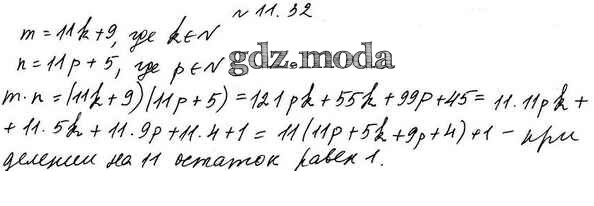 № 11.32
m = 11k + 9, где k ∈ N
n = 11p + 5, где p ∈ N
gdz.moda
m·n = (11k + 9)(11p + 5) = 121pk + 55k + 99p + 45 = 11·11pk +
+ 11·5k + 11·9p + 11·4 + 1 = 11(11p + 5k + 9p + 4) + 1 – при
делении на 11 остаток равен 1.